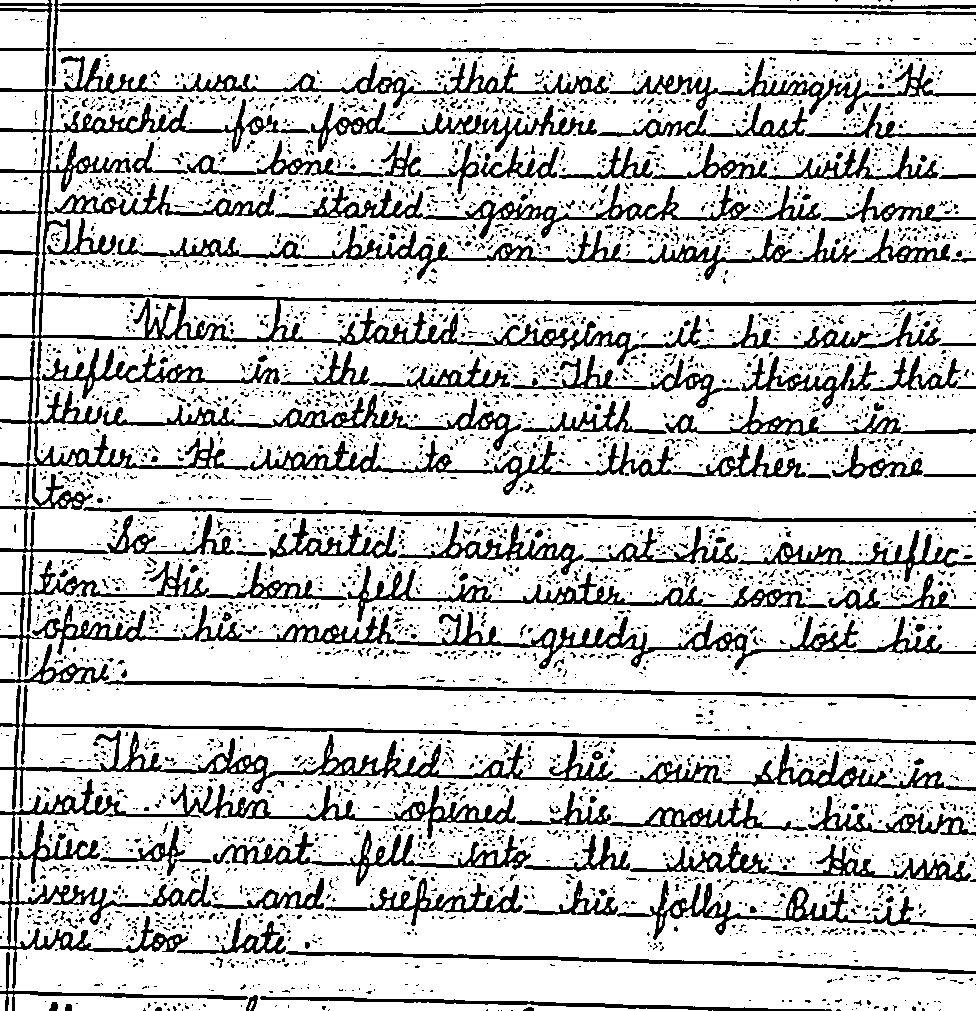 There was a dog that was very hungry. He
searched for food everywhere and last he
found a bone. He picked the bone with his
mouth and started going back to his home.
There was a bridge on the way to his home.
When he started crossing it he saw his
reflection in the water. The dog thought that
there was another dog with a bone in
water. He wanted to get that other bone
too.
So he started barking at his own reflec-
tion. His bone fell in water as soon as he
opened his mouth. The greedy dog lost his
bone.
The dog barked at his own shadow in
water. When he opened his mouth, his own
piece of meat fell into the water. Hae was
very sad and repented his folly. But it
was too late.